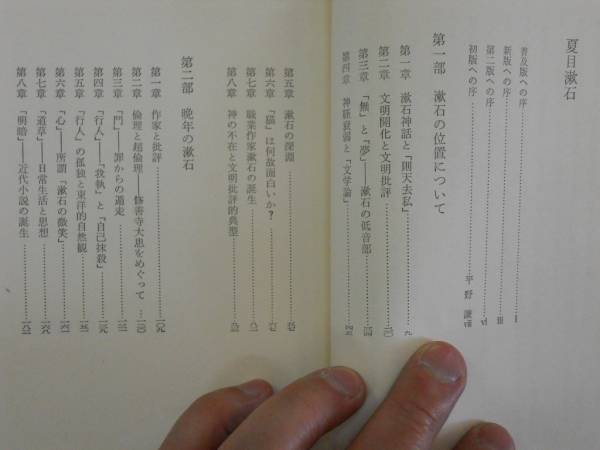 夏目漱石
普及版への序………Ⅰ
新版への序………Ⅲ
第二版への序………Ⅶ
初版への序………平野謙 Ⅷ
第一部 漱石の位置について
第一章 漱石神話と「則天去私」………九
第二章 文明開化と文明批評………二〇
第三章 「無」と「夢」――漱石の低音部………三四
第四章 神経衰弱と「文学論」………四五
第五章 漱石の深淵………五七
第六章 「猫」は何故面白いか?………六七
第七章 職業作家漱石の誕生………八一
第八章 神の不在と文明批評的典型………九三
第二部 晩年の漱石
第一章 作家と批評………一〇九
第二章 倫理と超倫理――修善寺大患をめぐって………一二〇
第三章 「門」――罪からの遁走………一三一
第四章 「行人」――「我執」と「自己抹殺」………一三九
第五章 「行人」の孤独と東洋的自然観………一五一
第六章 「心」――所謂「漱石の微笑」………一六一
第七章 「道草」――日常生活と思想………一六八
第八章 「明暗」――近代小説の誕生………一八三